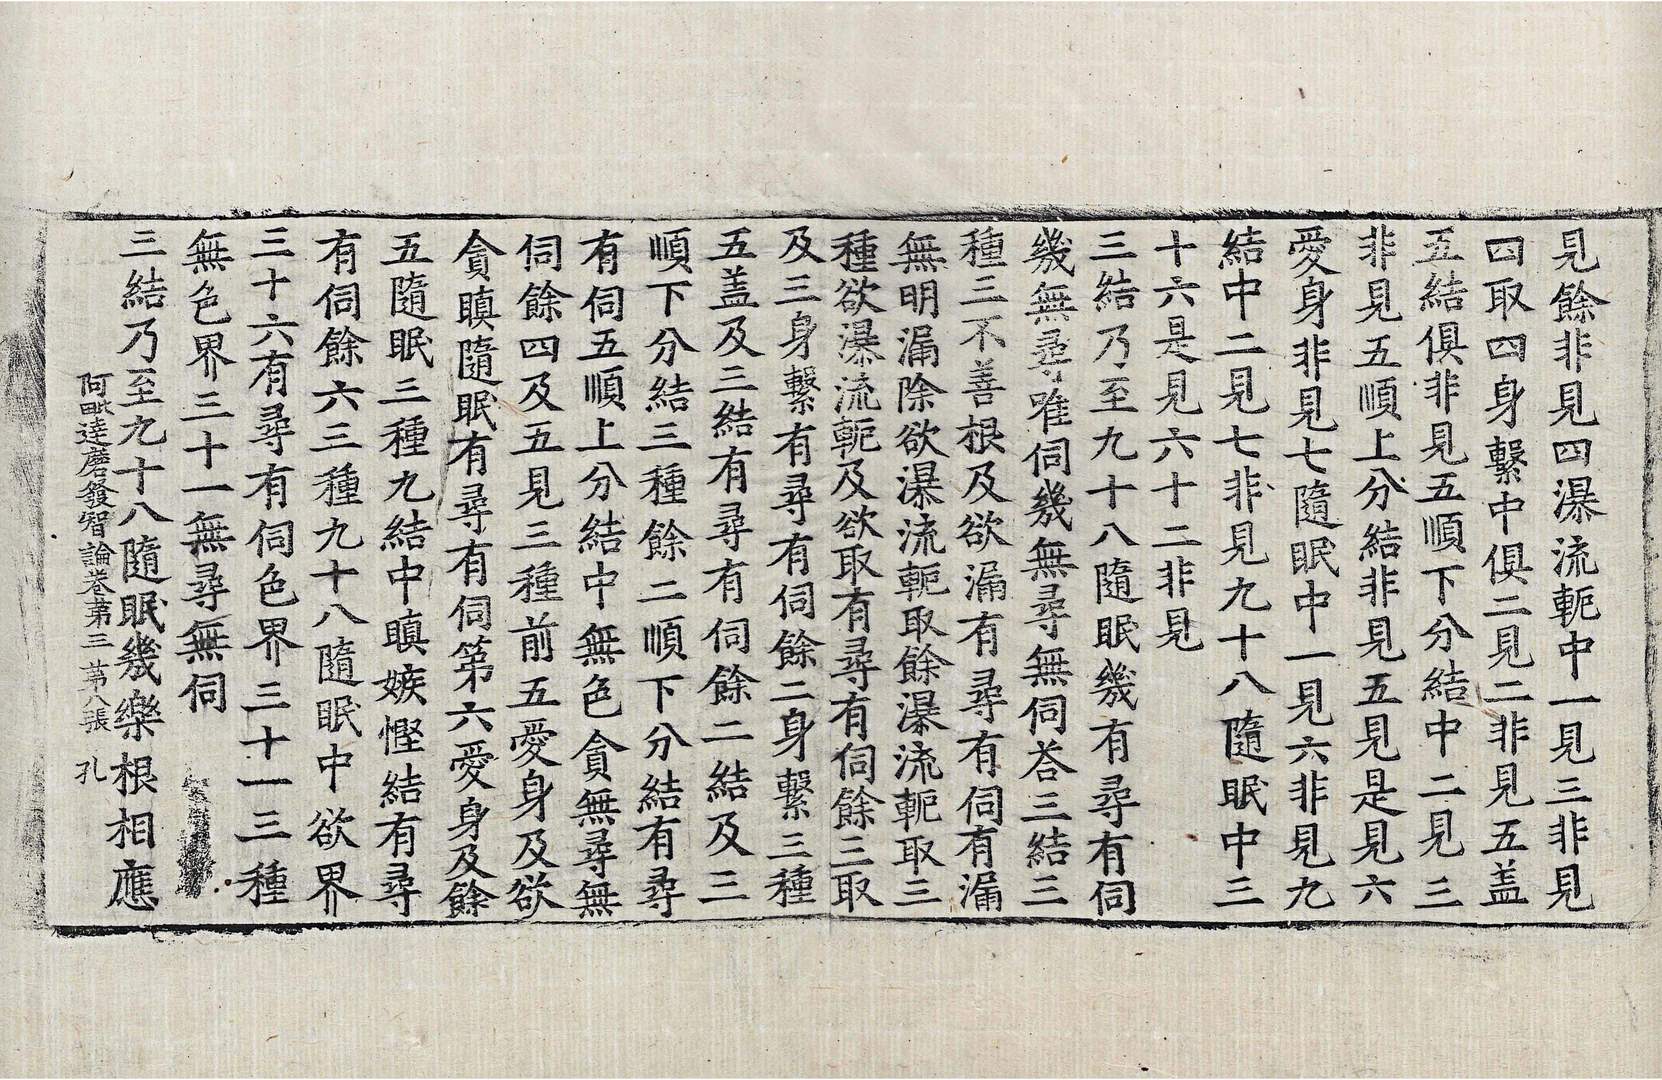 見餘非見四瀑流軛中一見三非見
四取四身繫中俱二見二非見五盖
五結俱非見五順下分結中二見三
非見五順上分結非見五見是見六
愛身非見七隨眠中一見六非見九
結中二見七非見九十八隨眠中三
十六是見六十二非見
三結乃至九十八隨眠幾有尋有伺
幾無尋唯伺幾無尋無伺荅三結三
種三不善根及欲漏有尋有伺有漏
無明漏除欲瀑流軛取餘瀑流軛取三
種欲瀑流軛及欲取有尋有伺餘三取
及三身繫有尋有伺餘二身繫三種
五盖及三結有尋有伺餘二結及三
順下分結三種餘二順下分結有尋
有伺五順上分結中無色貪無尋無
伺餘四及五見三種前五愛身及欲
貪瞋隨眠有尋有伺第六愛身及餘
五隨眠三種九結中瞋嫉慳結有尋
有伺餘六三種九十八隨眠中欲界
三十六有尋有伺色界三十一三種
無色界三十一無尋無伺
三結乃至九十八隨眠幾樂根相應
阿毗達磨發智論卷第三 第八張 孔